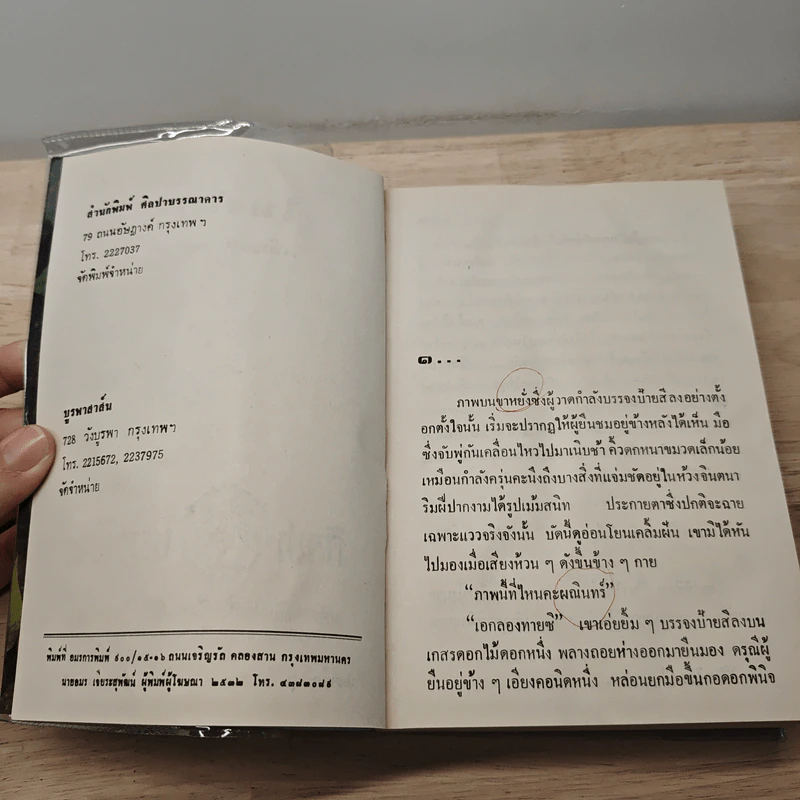 สำนักพิมพ์ ศิลปาบรรณาคาร
79 ถนนอัษฎางค์ กรุงเทพ ฯ
โทร. 2227037
จัดพิมพ์จำหน่าย
บูรพาสาส์น
728 วังบูรพา กรุงเทพฯ
โทร. 2215672, 2237975
จัดจำหน่าย
พิมพ์ที่ อมรการพิมพ์ ๙๐๐/๑๕-๑๖ ถนนเจริญรัถ คลองสาน กรุงเทพมหานคร
นายอมร เจียระสุพัฒน์ ผู้พิมพ์ผู้โฆษณา ๒๕๓๒ โทร. ๔๓๗๓๐๘๑
๑...
ภาพบนขาหยั่งซึ่งผู้วาดกำลังบรรจงป้ายสีลงอย่างตั้ง
อกตั้งใจนั้น เริ่มจะปรากฏให้ผู้ยืนชมอยู่ข้างหลังได้เห็น มือ
ซึ่งจับพู่กันเคลื่อนไหวไปมาเนิบช้า คิ้วดกหนาขมวดเล็กน้อย
เหมือนกำลังครุ่นคะนึงถึงบางสิ่งที่แจ่มชัดอยู่ในห้วงจินตนา
ริมฝีปากงามได้รูปเม้มสนิท ประกายตาซึ่งปกติจะฉาย
เฉพาะแววจริงจังนั้น บัดนี้ดูอ่อนโยนเคลิ้มฝัน เขามิได้หัน
ไปมองเมื่อเสียงห้วน ๆ ดังขึ้นข้าง ๆ กาย
“ภาพนี้ที่ไหนคะผณินทร์”
“เอกลองทายซิ” เขาเอ่ยยิ้ม ๆ บรรจงป้ายสีลงบน
เกสรดอกไม้ดอกหนึ่ง พลางถอยห่างออกมายืนมอง ดรุณีผู้
ยืนอยู่ข้าง ๆ เอียงคอนิดหนึ่ง หล่อนยกมือขึ้นกอดอกพินิจ